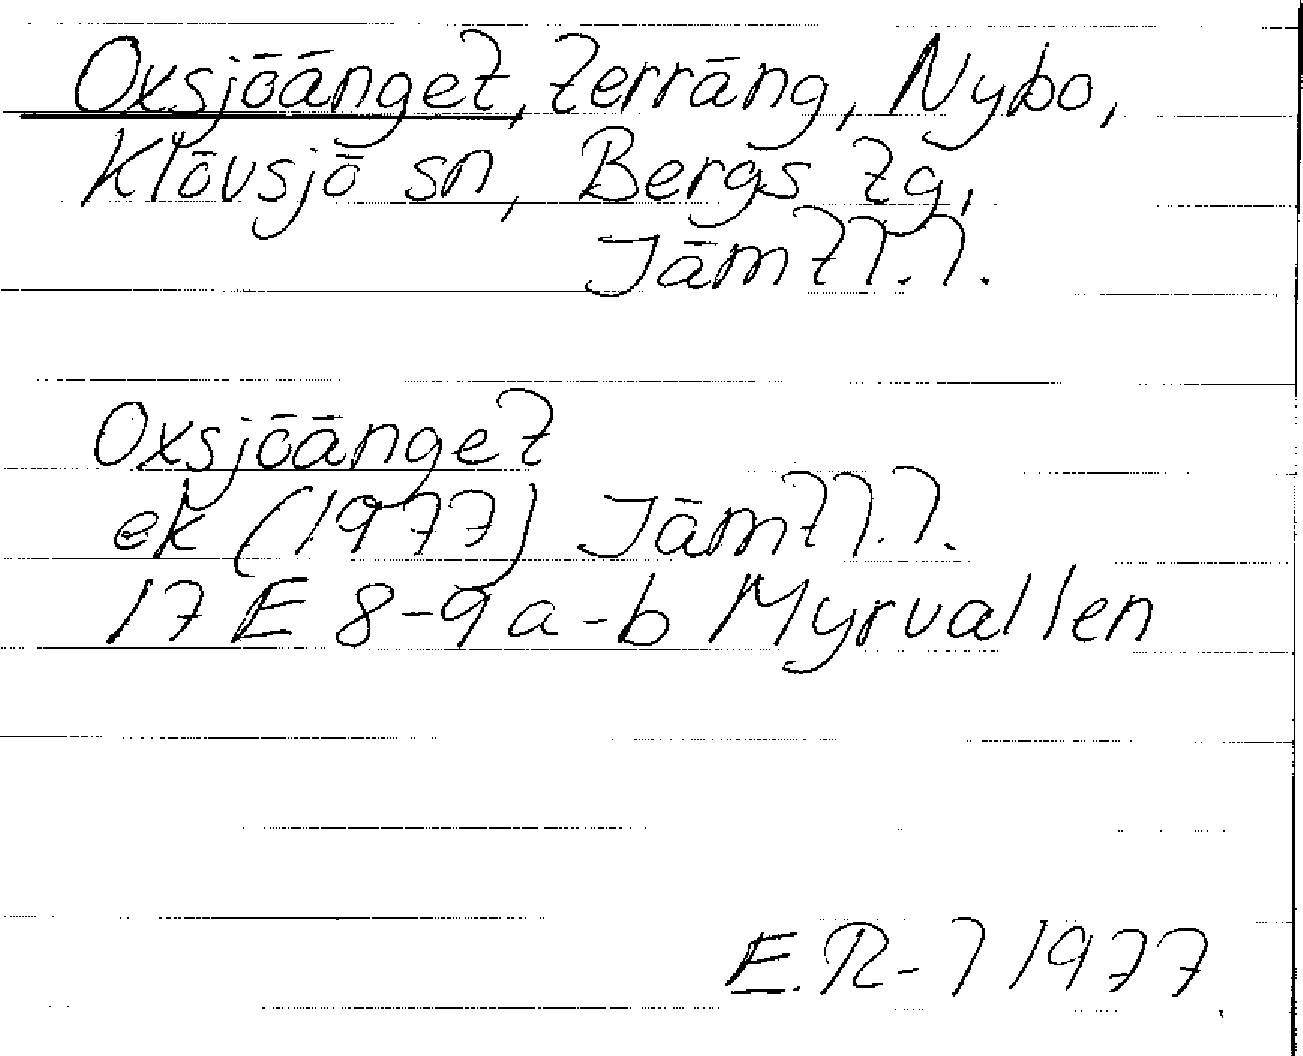 Oxsjöänget, terräng, Nybo,
Klövsjö sn, Bergs tg,
Jämtl.l.
Oxsjöänget
ek (1977) Jämtl.l.
17 E 8-9 a-b Myrvallen
E.R-l 1977